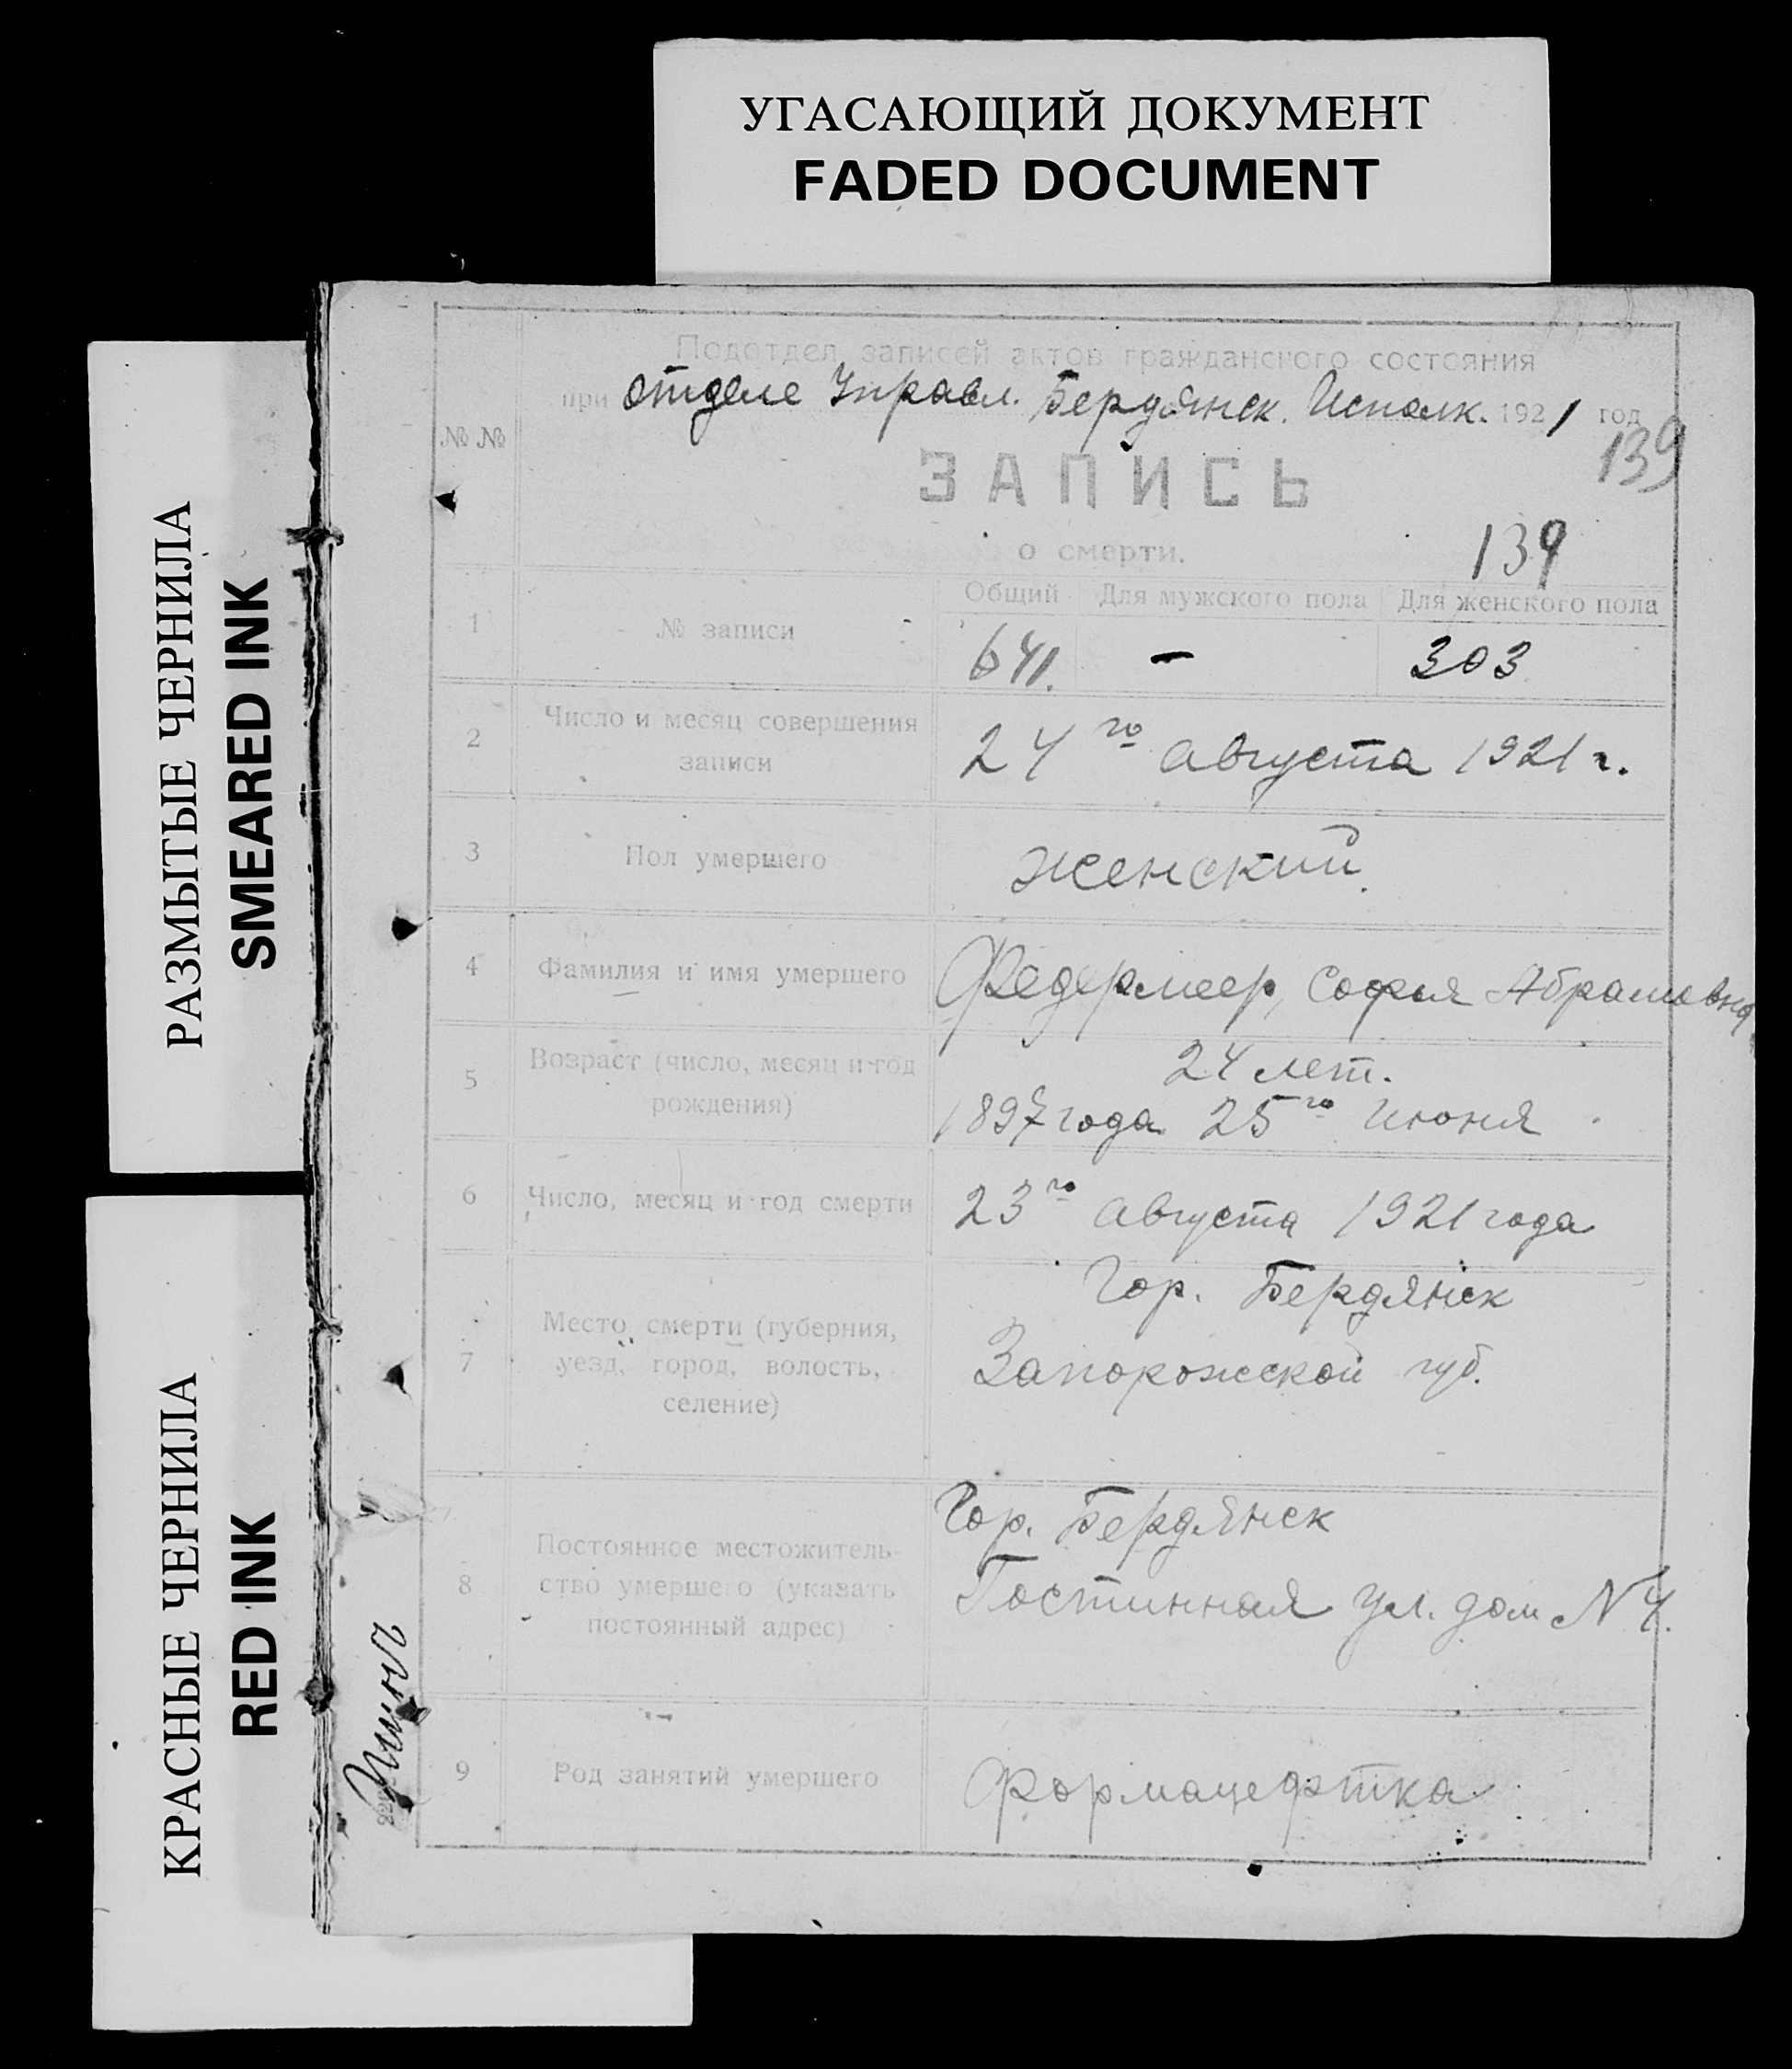 УГАСАЮЩИЙ ДОКУМЕНТ
FADED DOCUMENT
РАЗМЫТЫЕ ЧЕРНИЛА
SMEARED INK
КРАСНЫЕ ЧЕРНИЛА
RED INK
Подотдел записей актов гражданского состояния
при отделе Управл. Бердянск. Исполк. 1921 год
139
№ №
ЗАПИСЬ
о смерти.
139
Общий Для мужского пола Для женского пола
1 № записи 641. – 303
2 Число и месяц совершения
записи
24го августа 1921 г.
3 Пол умершего женский.
4 Фамилия и имя умершего Федермеер, Софья Абрамовна
5 Возраст (число, месяц и год
рождения)
24 лет.
1897 года 25го июня
6 Число, месяц и год смерти 23го августа 1921 года
7 Место смерти (губерния,
уезд, город, волость,
селение)
Гор. Бердянск
Запорожской губ.
8 Постоянное местожитель-
ство умершего (указать
постоянный адрес)
Гор. Бердянск
Гостинная ул. дом N 4.
9 Род занятий умершего Формацефтка